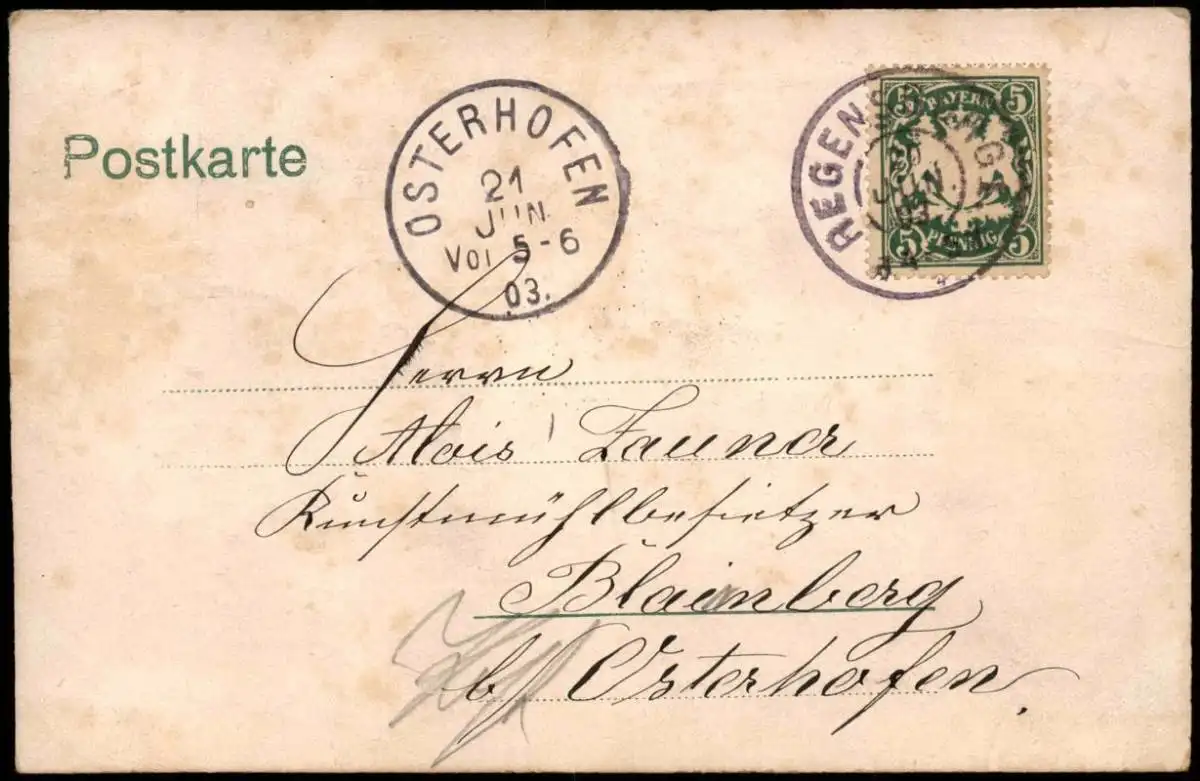 Postkarte
OSTERHOFEN
21
JUN
Vor 5-6
03.
REGENSBURG
BAYERN
5 5
5 5
PFENNIG
Herrn
Alois Zauner
Kunstmühlbesietzer
Blaimberg
b/ Osterhofen.